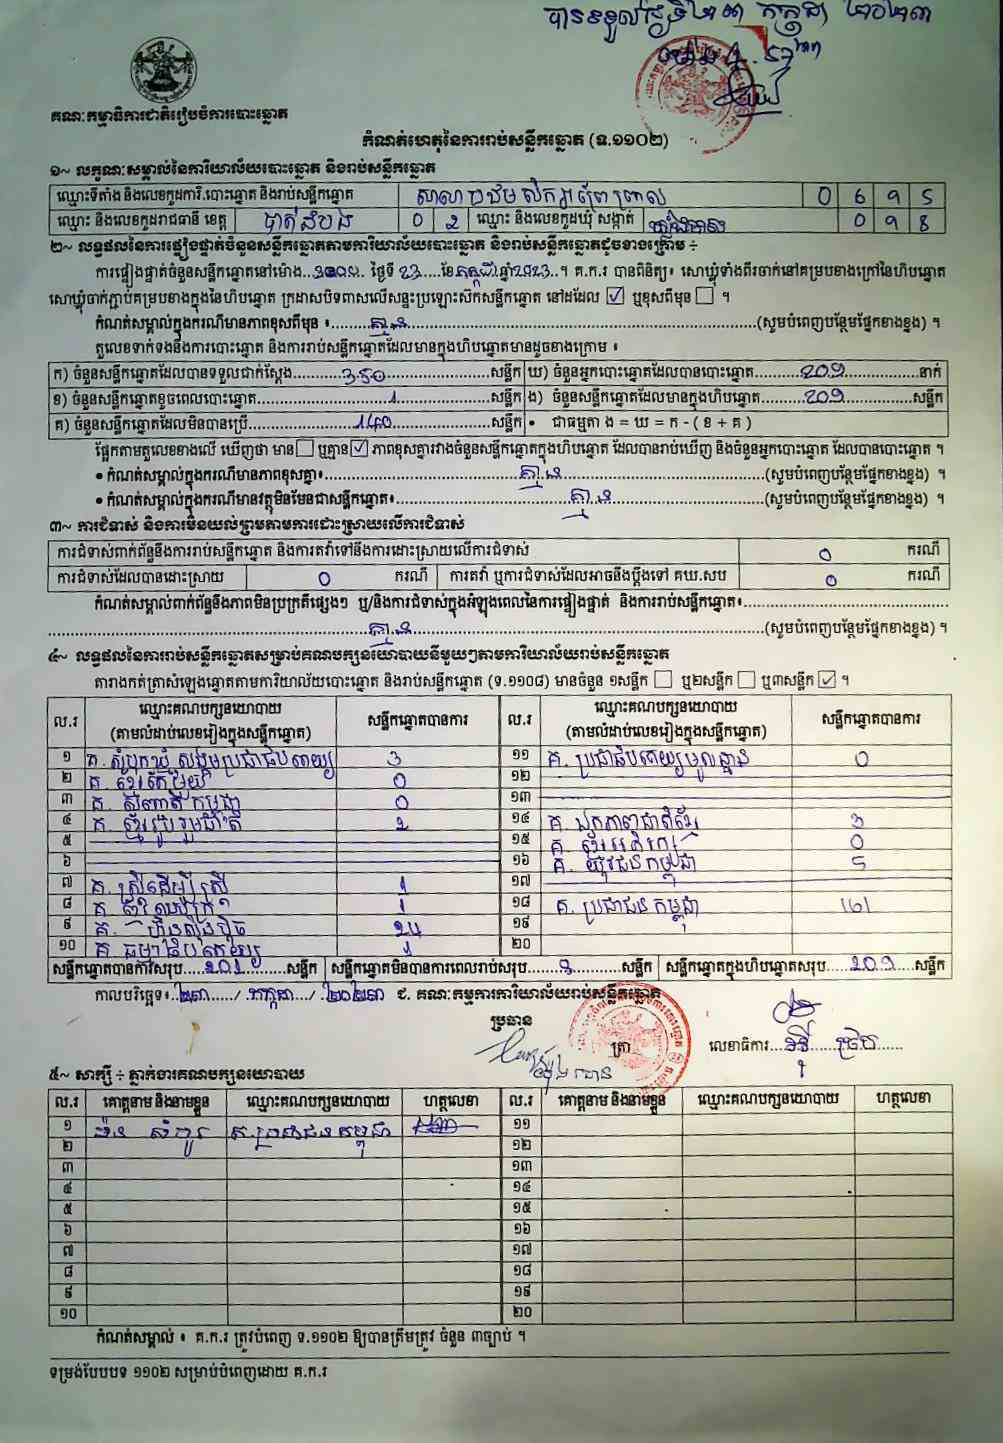 បានទទួលថ្ងៃទី២៣ កក្កដា ២០២៣
គណៈកម្មាធិការជាតិរៀបចំការបោះឆ្នោត
កំណត់ហេតុនៃការរាប់សន្លឹកឆ្នោត (ទ.១១០២)
១~ លក្ខណៈសម្គាល់នៃការិយាល័យបោះឆ្នោត និងរាប់សន្លឹកឆ្នោត
ឈ្មោះទីតាំង និងលេខកូដការិ.បោះឆ្នោត និងរាប់សន្លឹកឆ្នោត សាលាបឋមសិក្សា 0 6 9 5
ឈ្មោះ និងលេខកូដរាជធានី ខេត្ត បាត់ដំបង 0 2 ឈ្មោះ និងលេខកូដឃុំ សង្កាត់ 0 9 8
២~ លទ្ធផលនៃការផ្ទៀងផ្ទាត់ចំនួនសន្លឹកឆ្នោតតាមការិយាល័យបោះឆ្នោត និងរាប់សន្លឹកឆ្នោតដូចខាងក្រោម ÷
ការផ្ទៀងផ្ទាត់ចំនួនសន្លឹកឆ្នោតនៅម៉ោង ថ្ងៃទី 23 ខែ កក្កដា ឆ្នាំ 2023 ។ គ.ក.រ បានពិនិត្យ៖ សោឃ្លុំទាំងពីរចាក់នៅគម្របខាងក្រៅនៃហិបឆ្នោត
សោឃ្លុំចាក់ភ្ជាប់គម្របខាងក្នុងនៃហិបឆ្នោត ក្រដាសបិទពាសលើសន្ទះប្រឡោះស៊កសន្លឹកឆ្នោត នៅដដែល ☑ ឬខុសពីមុន ☐ ។
កំណត់សម្គាល់ក្នុងករណីមានភាពខុសពីមុន ៖ គ្មាន (សូមបំពេញបន្ថែមផ្នែកខាងខ្នង) ។
តួលេខទាក់ទងនឹងការបោះឆ្នោត និងការរាប់សន្លឹកឆ្នោតដែលមានក្នុងហិបឆ្នោតមានដូចខាងក្រោម ៖
ក) ចំនួនសន្លឹកឆ្នោតដែលបានទទួលជាក់ស្តែង 350 សន្លឹក ឃ) ចំនួនអ្នកបោះឆ្នោតដែលបានបោះឆ្នោត 209 នាក់
ខ) ចំនួនសន្លឹកឆ្នោតខូចពេលបោះឆ្នោត 1 សន្លឹក ង) ចំនួនសន្លឹកឆ្នោតដែលមានក្នុងហិបឆ្នោត 209 សន្លឹក
គ) ចំនួនសន្លឹកឆ្នោតដែលមិនបានប្រើ 140 សន្លឹក • ជាធម្មតា ង = ឃ = ក - ( ខ + គ )
ផ្អែកតាមតួលេខខាងលើ ឃើញថា មាន ☐ ឬគ្មាន ☑ ភាពខុសគ្នារវាងចំនួនសន្លឹកឆ្នោតក្នុងហិបឆ្នោត ដែលបានរាប់ឃើញ និងចំនួនអ្នកបោះឆ្នោត ដែលបានបោះឆ្នោត ។
• កំណត់សម្គាល់ក្នុងករណីមានភាពខុសគ្នា៖ គ្មាន (សូមបំពេញបន្ថែមផ្នែកខាងខ្នង) ។
• កំណត់សម្គាល់ក្នុងករណីមានវត្ថុមិនមែនជាសន្លឹកឆ្នោត៖ គ្មាន (សូមបំពេញបន្ថែមផ្នែកខាងខ្នង) ។
៣~ ការជំទាស់ និងការមិនយល់ព្រមតាមការដោះស្រាយលើការជំទាស់
ការជំទាស់ពាក់ព័ន្ធនឹងការរាប់សន្លឹកឆ្នោត និងការតវ៉ាទៅនឹងការដោះស្រាយលើការជំទាស់ 0 ករណី
ការជំទាស់ដែលបានដោះស្រាយ 0 ករណី ការតវ៉ា ឬការជំទាស់ដែលអាចនឹងប្តឹងទៅ គឃ.សប 0 ករណី
កំណត់សម្គាល់ពាក់ព័ន្ធនឹងភាពមិនប្រក្រតីផ្សេងៗ ឬ/និងការជំទាស់ក្នុងអំឡុងពេលនៃការផ្ទៀងផ្ទាត់ និងការរាប់សន្លឹកឆ្នោត៖
គ្មាន (សូមបំពេញបន្ថែមផ្នែកខាងខ្នង) ។
៤~ លទ្ធផលនៃការរាប់សន្លឹកឆ្នោតសម្រាប់គណបក្សនយោបាយនីមួយៗតាមការិយាល័យរាប់សន្លឹកឆ្នោត
តារាងកត់ត្រាសំឡេងឆ្នោតតាមការិយាល័យបោះឆ្នោត និងរាប់សន្លឹកឆ្នោត (ទ.១១០៨) មានចំនួន ១សន្លឹក ☐ ឬ២សន្លឹក ☐ ឬ៣សន្លឹក ☑ ។
ល.រ ឈ្មោះគណបក្សនយោបាយ សន្លឹកឆ្នោតបានការ ល.រ ឈ្មោះគណបក្សនយោបាយ សន្លឹកឆ្នោតបានការ
(តាមលំដាប់លេខរៀងក្នុងសន្លឹកឆ្នោត) (តាមលំដាប់លេខរៀងក្នុងសន្លឹកឆ្នោត)
១ គ. សំបុកឃ្មុំសង្គមប្រជាធិបតេយ្យ 3 ១១ គ. ប្រជាធិបតេយ្យមូលដ្ឋាន 0
២ គ. ខ្មែរតែមួយ 0 ១២
៣ គ. សញ្ជាតិកម្ពុជា 0 ១៣
៤ គ. ខ្មែររួបរួមជាតិ 2 ១៤ គ. ឯកភាពជាតិខ្មែរ 3
៥ ១៥ គ. ខ្មែរអភិរក្ស 0
៦ ១៦ គ. យុវជនកម្ពុជា 5
៧ គ. ស្រីដើម្បីស្រី 1 ១៧
៨ គ. 1 ១៨ គ. ប្រជាជនកម្ពុជា 161
៩ គ. ហ្វ៊ុនស៊ិនប៉ិច 24 ១៩
១០ គ. ធម្មាធិបតេយ្យ 1 ២០
សន្លឹកឆ្នោតបានការសរុប 201 សន្លឹក សន្លឹកឆ្នោតមិនបានការពេលរាប់សរុប 8 សន្លឹក សន្លឹកឆ្នោតក្នុងហិបឆ្នោតសរុប 209 សន្លឹក
កាលបរិច្ឆេទ៖ ២៣ / កក្កដា / ២០២៣ ជ. គណៈកម្មការការិយាល័យរាប់សន្លឹកឆ្នោត
ប្រធាន ត្រា លេខាធិការ
៥~ សាក្សី ÷ ភ្នាក់ងារគណបក្សនយោបាយ
ល.រ គោត្តនាម និងនាមខ្លួន ឈ្មោះគណបក្សនយោបាយ ហត្ថលេខា ល.រ គោត្តនាម និងនាមខ្លួន ឈ្មោះគណបក្សនយោបាយ ហត្ថលេខា
១ គ. ប្រជាជនកម្ពុជា ១១
២ ១២
៣ ១៣
៤ ១៤
៥ ១៥
៦ ១៦
៧ ១៧
៨ ១៨
៩ ១៩
១០ ២០
កំណត់សម្គាល់ ៖ គ.ក.រ ត្រូវបំពេញ ទ.១១០២ ឱ្យបានត្រឹមត្រូវ ចំនួន ៣ច្បាប់ ។
ទម្រង់បែបបទ ១១០២ សម្រាប់បំពេញដោយ គ.ក.រ